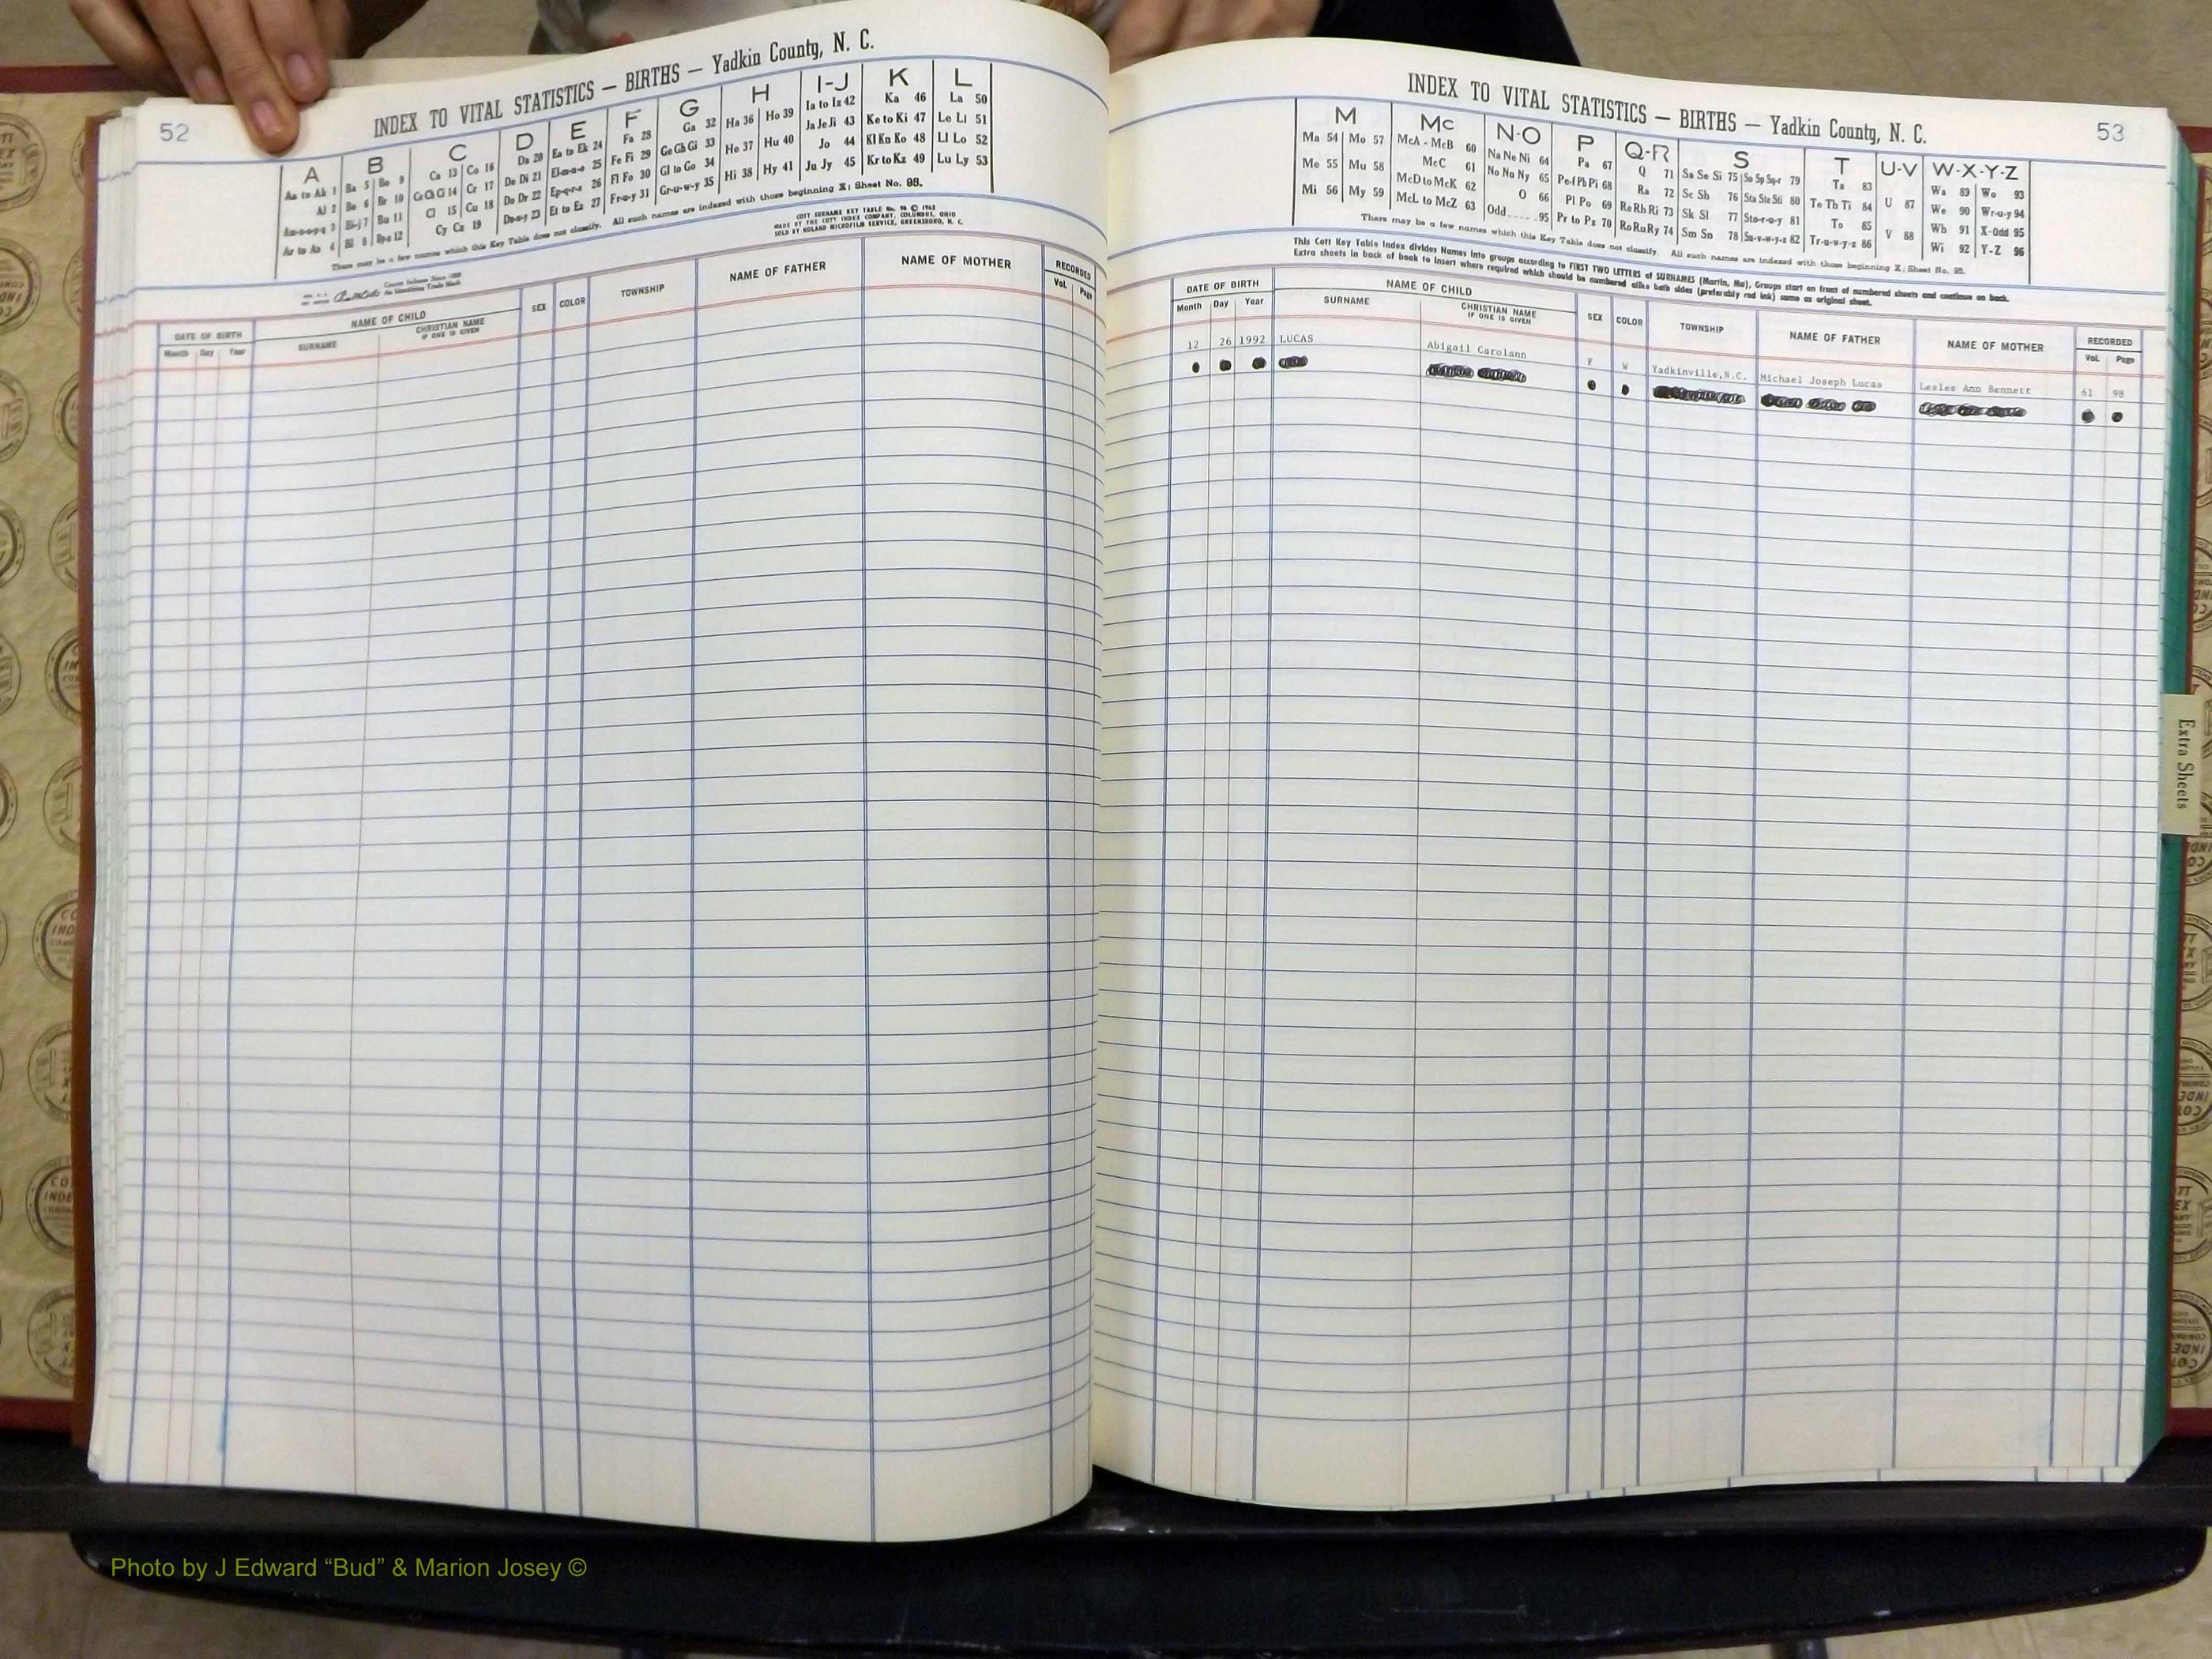 52
INDEX TO VITAL STATISTICS — BIRTHS — Yadkin County, N. C.
A B C D E F G H I-J K L
Aa to Ak 1 Ba 5 Bo 9 Ca 13 Co 16 Da 20 Ea to Ek 24 Fa 28 Ga 32 Ha 36 Ho 39 Ia to Iz 42 Ka 46 La 50
Al 2 Be 6 Br 10 Ce Ch Ci 14 Cr 17 De Di 21 El-m-n-o 25 Fe Fi 29 Ge Gh Gi 33 He 37 Hu 40 Ja Je Ji 43 Ke to Ki 47 Le Li 51
Am-n-o-p-q 3 Bi-j 7 Bu 11 Cl 15 Cu 18 Do Dr 22 Ep-q-r-s 26 Fl Fo 30 Gl to Go 34 Hi 38 Hy 41 Jo 44 Kl Kn Ko 48 Ll Lo 52
Ar to Az 4 Bl 8 By-z 12 Cy Cz 19 Du-w-y 23 Et to Ez 27 Fr-u-y 31 Gr-u-w-y 35 Ju Jy 45 Kr to Kz 49 Lu Ly 53
There may be a few names which this Key Table does not classify. All such names are indexed with those beginning X; Sheet No. 95.
COTT SURNAME KEY TABLE No. 96 © 1963
MADE BY THE COTT INDEX COMPANY, COLUMBUS, OHIO
SOLD BY NOLAND MICROFILM SERVICE, GREENSBORO, N. C.
County Indexes Since 1888
An Identifying Trade Mark
DATE OF BIRTH NAME OF CHILD SEX COLOR TOWNSHIP NAME OF FATHER NAME OF MOTHER RECORDED
Month Day Year SURNAME CHRISTIAN NAME Vol. Page
IF ONE IS GIVEN
INDEX TO VITAL STATISTICS — BIRTHS — Yadkin County, N. C.
53
M Mc N-O P Q-R S T U-V W-X-Y-Z
Ma 54 Mo 57 McA - McB 60 Na Ne Ni 64 Pa 67 Q 71 Sa Se Si 75 So Sp Sq-r 79 Ta 83 U 87 Wa 89 Wo 93
Me 55 Mu 58 McC 61 No Nu Ny 65 Pe-f Ph Pi 68 Ra 72 Sc Sh 76 Sta Ste Sti 80 Te Th Ti 84 V 88 We 90 Wr-u-y 94
Mi 56 My 59 McD to McK 62 O 66 Pl Po 69 Re Rh Ri 73 Sk Sl 77 Sto-r-u-y 81 To 85 Wh 91 X-Odd 95
McL to McZ 63 Odd.....95 Pr to Pz 70 Ro Ru Ry 74 Sm Sn 78 Su-v-w-y-z 82 Tr-u-w-y-z 86 Wi 92 Y-Z 96
There may be a few names which this Key Table does not classify. All such names are indexed with those beginning X; Sheet No. 95.
This Cott Key Table Index divides Names into groups according to FIRST TWO LETTERS of SURNAMES (Martin, Ma), Groups start on front of numbered sheets and continue on back.
Extra sheets in back of book to insert where required which should be numbered alike both sides (preferably red ink) same as original sheet.
DATE OF BIRTH NAME OF CHILD SEX COLOR TOWNSHIP NAME OF FATHER NAME OF MOTHER RECORDED
Month Day Year SURNAME CHRISTIAN NAME Vol. Page
IF ONE IS GIVEN
12 26 1992 LUCAS Abigail Carolann F W Yadkinville,N.C. Michael Joseph Lucas Leslee Ann Bennett 61 98
Extra Sheets
Photo by J Edward “Bud” & Marion Josey ©